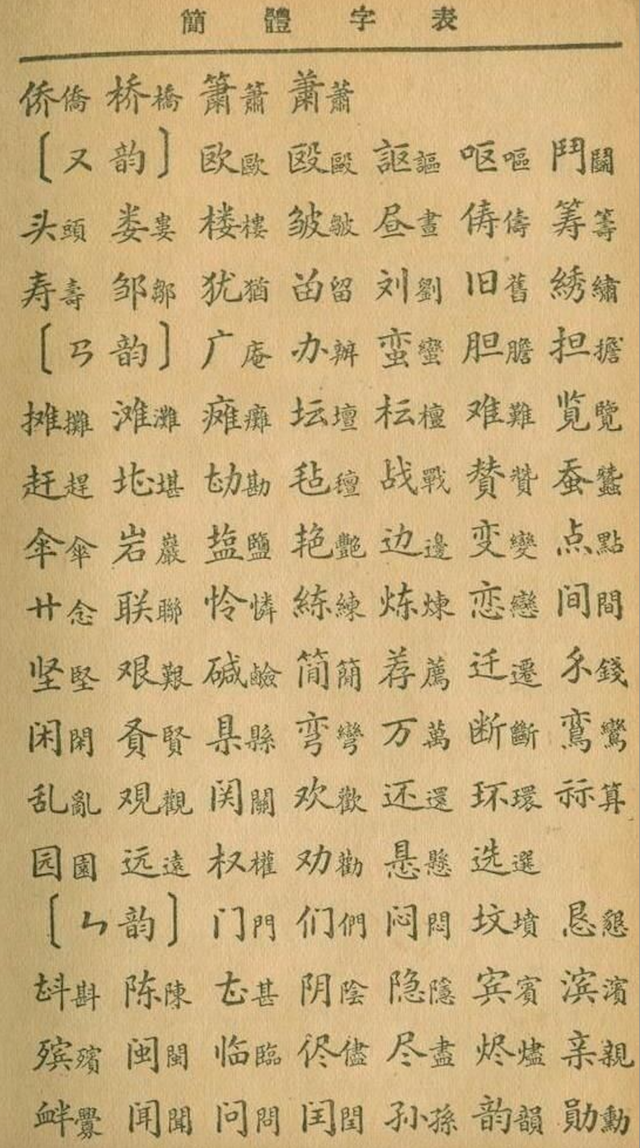 簡體字表
侨僑 桥橋 箫簫 萧蕭
〔ㄡ韵〕 欧歐 殴毆 讴謳 呕嘔 鬥鬭
头頭 娄婁 楼樓 皱皺 昼晝 俦儔 筹籌
寿壽 邹鄒 犹猶 畄留 刘劉 旧舊 綉繡
〔ㄢ韵〕 广庵 办辦 蛮蠻 胆膽 担擔
摊攤 滩灘 瘫癱 坛壇 枟檀 难難 览覽
赶趕 堪 勘 毡氈 战戰 賛贊 蚕蠶
伞傘 岩巖 塩鹽 艳艷 边邊 变變 点點
廿念 联聯 怜憐 练練 炼煉 恋戀 间間
坚堅 艰艱 碱鹼 简簡 荐薦 迁遷 錢
闲閑 賢 県縣 弯彎 万萬 断斷 鸾鸞
乱亂 观觀 関關 欢歡 还還 环環 祘算
园園 远遠 权權 劝勸 悬懸 选選
〔ㄣ韵〕 门門 们們 闷悶 坟墳 恳懇
斟 陈陳 甚 阴陰 隐隱 宾賓 滨濱
殡殯 闽閩 临臨 侭儘 尽盡 烬燼 亲親
衅釁 闻聞 问問 闰閏 孙孫 韵韻 勋勳